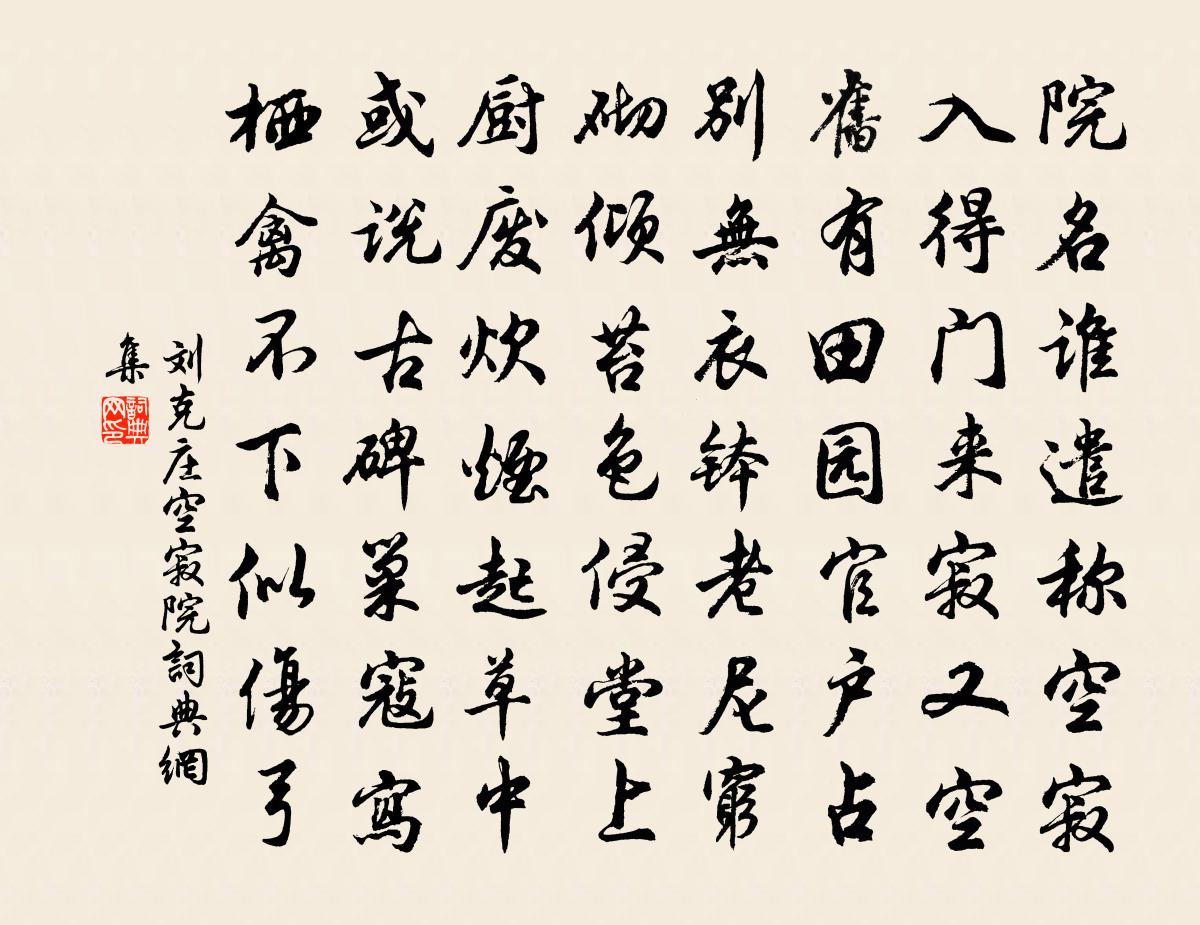 院名谁遣称空寂
入得门来寂又空
舊有田园官户占
别無衣钵老尼窮
砌倾苔色侵堂上
厨废炊煙起草中
或说古碑巢寇寫
栖禽不下似傷弓
刘克庄空寂院詞典網
集
詞典
网印